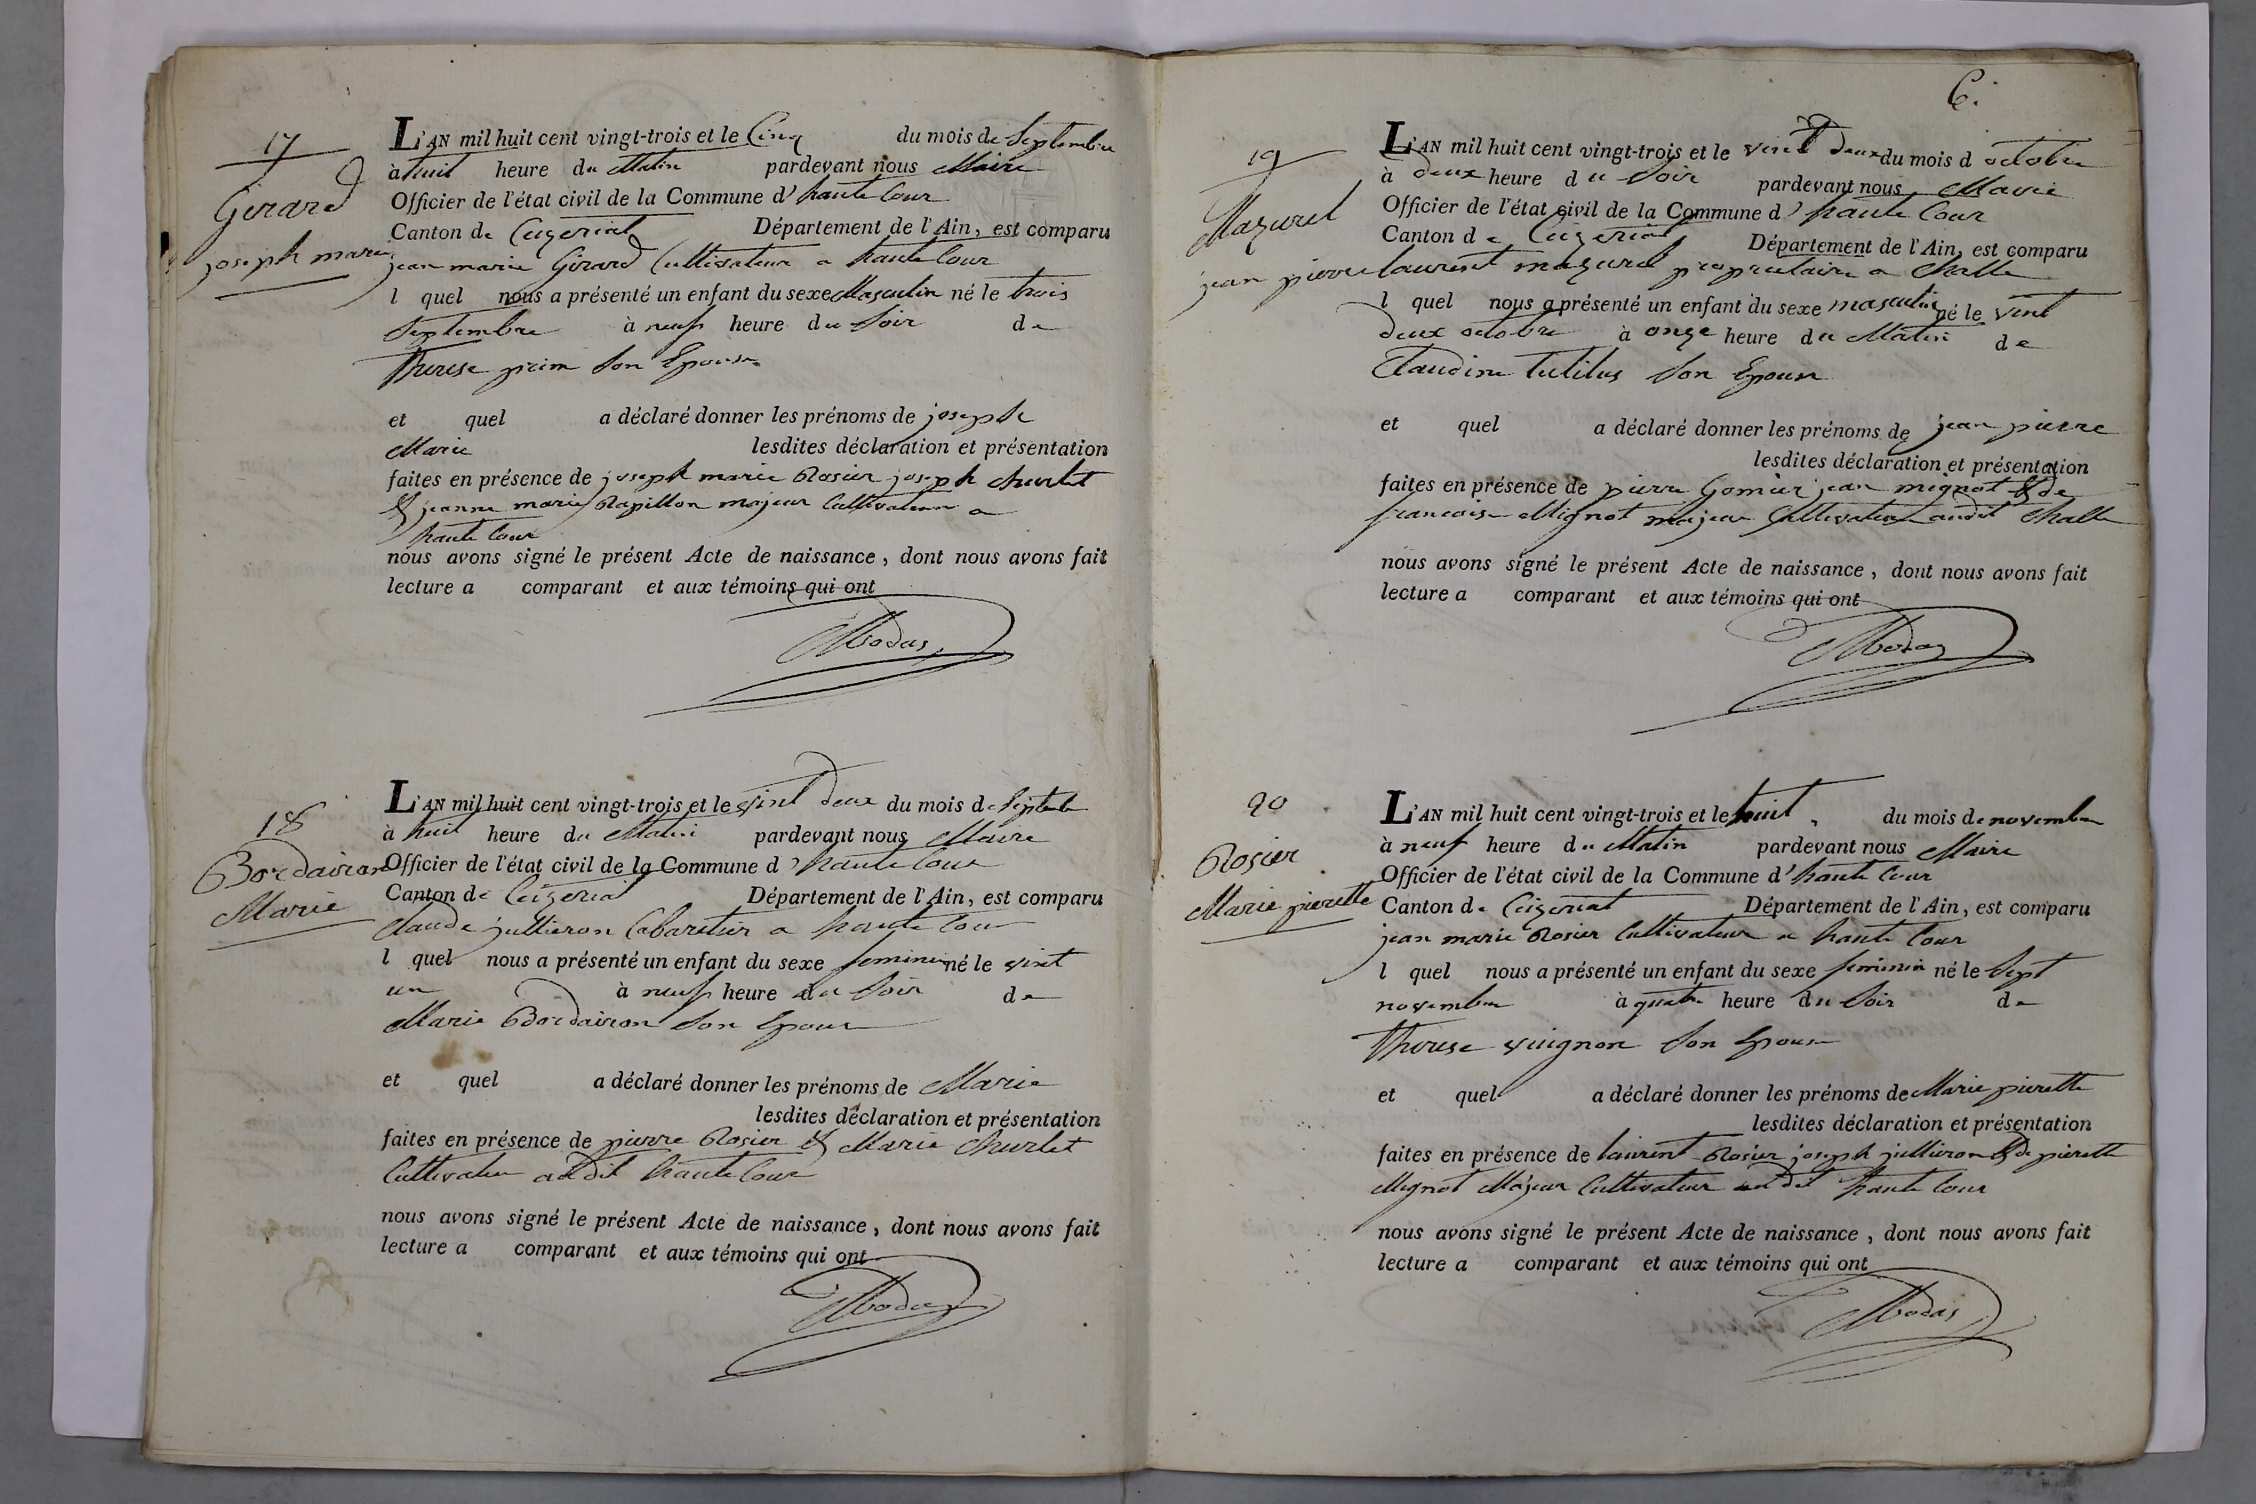 17
Girard
joseph marie
L'AN mil huit cent vingt-trois et le Cinq du mois de Septembre
à huit heure du Matin pardevant nous Maire
Officier de l'état civil de la Commune d'haute Cour
Canton de Ceizeriat Département de l'Ain, est comparu
jean marie Girard Cultivateur a haute Cour
l quel nous a présenté un enfant du sexe Masculin né le trois
Septembre à neuf heure du Soir de
Therese prim Son Epouse
et quel a déclaré donner les prénoms de joseph
Marie lesdites déclaration et présentation
faites en présence de joseph marie Rosier joseph Churlet
& jeanne marie Rapillon majeur Cultivateur a
haute Cour
nous avons signé le présent Acte de naissance, dont nous avons fait
lecture a comparant et aux témoins qui ont
18
Bordairon
Marie
L'AN mil huit cent vingt-trois et le vint deux du mois de Septembre
à huit heure du Matin pardevant nous Maire
Officier de l'état civil de la Commune d'haute Cour
Canton de Ceizeriat Département de l'Ain, est comparu
Claude jullieron Cabaretier a haute Cour
l quel nous a présenté un enfant du sexe feminin né le vint
un à neuf heure du Soir de
Marie Bordairon Son Epouse
et quel a déclaré donner les prénoms de Marie
lesdites déclaration et présentation
faites en présence de pierre Rosier & Marie Churlet
Cultivateur audit haute Cour
nous avons signé le présent Acte de naissance, dont nous avons fait
lecture a comparant et aux témoins qui ont
6.
19
Mazurel
jean pierre
L'AN mil huit cent vingt-trois et le vint deux du mois d octobre
à deux heure du Soir pardevant nous Maire
Officier de l'état civil de la Commune d'haute Cour
Canton de Ceizeriat Département de l'Ain, est comparu
laurent mazurel proprietaire a Challe
l quel nous a présenté un enfant du sexe masculin né le vint
deux octobre à onze heure du Matin de
Claudine Son Epouse
et quel a déclaré donner les prénoms de jean pierre
lesdites déclaration et présentation
faites en présence de pierre Gomier jean mignot & de
francoise Mignot majeur Cultivateur audit Challe
nous avons signé le présent Acte de naissance, dont nous avons fait
lecture a comparant et aux témoins qui ont
20
Rosier
Marie pierette
L'AN mil huit cent vingt-trois et le huit du mois de novembre
à neuf heure du Matin pardevant nous Maire
Officier de l'état civil de la Commune d'haute Cour
Canton de Ceizeriat Département de l'Ain, est comparu
jean marie Rosier Cultivateur a haute Cour
l quel nous a présenté un enfant du sexe feminin né le Sept
novembre à quatre heure du Soir de
Therese vuignon Son Epouse
et quel a déclaré donner les prénoms de Marie pierette
lesdites déclaration et présentation
faites en présence de laurent Rosier joseph jullieron & de pierette
Mignot Majeur Cultivateur audit haute Cour
nous avons signé le présent Acte de naissance, dont nous avons fait
lecture a comparant et aux témoins qui ont